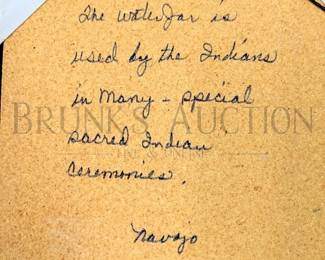 The water jar is
used by the Indians
in many - special
BRUNK'S AUCTION
sacred Indian
ceremonies.
Navajo